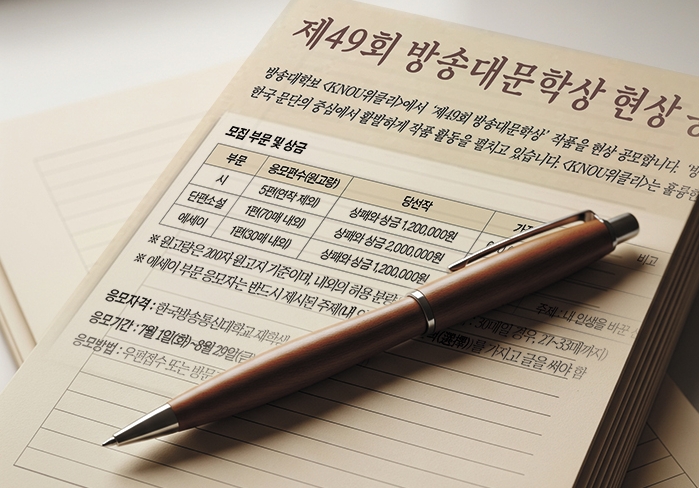 제49회 방송대문학상 현상
방송대학보 <KNOU위클리>에서 '제49회 방송대문학상' 작품을 현상 공모합니다.
한국 문단의 중심에서 활발하게 작품 활동을 펼치고 있습니다. <KNOU위클리>는 훌륭한
모집 부문 및 상금
부문 응모편수(원고량) 당선작 비고
시 5편(연작 제외) 상패와 상금 1,200,000원
단편소설 1편(70매 내외) 상패와 상금 2,000,000원
에세이 1편(30매 내외) 상패와 상금 1,200,000원 주제: 내 인생을 바꾼
※ 원고량은 200자 원고지 기준이며, 내외의 허용 분량 : 30매일 경우, 27~33매까지)
※ 에세이 부문 응모자는 반드시 제시된 주제(내 를 가지고 글을 써야 함
응모자격 : 한국방송통신대학교 재학생
응모기간 : 7월 1일(화)~8월 29일(금)
응모방법 : 우편접수 또는 방문